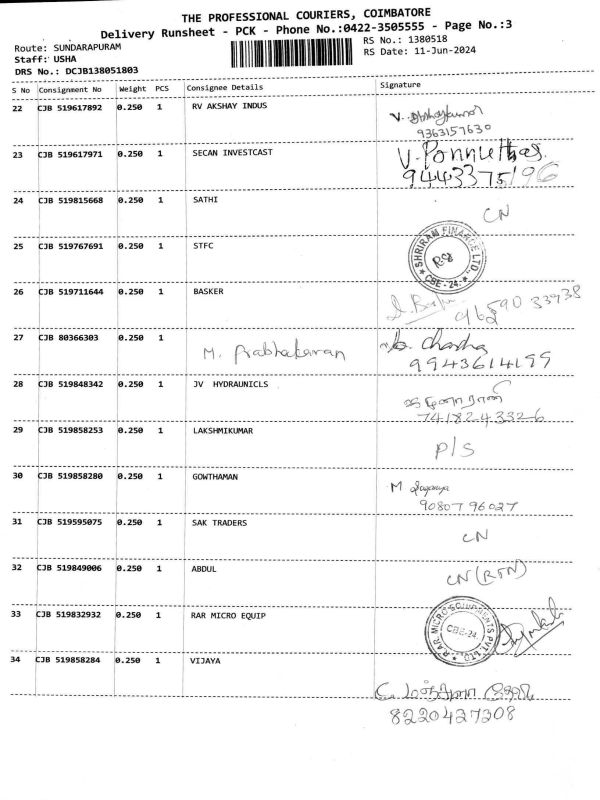 THE PROFESSIONAL COURIERS, COIMBATORE
Delivery Runsheet - PCK - Phone No.:0422-3505555 - Page No.:3
Route: SUNDARAPURAM
RS No.: 1380518
Staff: USHA
RS Date: 11-Jun-2024
DRS No.: DCJB138051803
S No Consignment No Weight PCS Consignee Details Signature
22 CJB 519617892 0.250 1 RV AKSHAY INDUS
9363157630
23 CJB 519617971 0.250 1 SECAN INVESTCAST V. 
9443375196
24 CJB 519815668 0.250 1 SATHI CN
25 CJB 519767691 0.250 1 STFC SHRIRAM FINANCE LTD. CBE-24.
26 CJB 519711644 0.250 1 BASKER
27 CJB 80366303 0.250 1 M. Prabhakaran
9943614199
28 CJB 519848342 0.250 1 JV HYDRAUNICLS
7418243326
29 CJB 519858253 0.250 1 LAKSHMIKUMAR P/S
30 CJB 519858280 0.250 1 GOWTHAMAN M
9080796027
31 CJB 519595075 0.250 1 SAK TRADERS CN
32 CJB 519849006 0.250 1 ABDUL CN (RTN)
33 CJB 519832932 0.250 1 RAR MICRO EQUIP CBE-24.
34 CJB 519858284 0.250 1 VIJAYA
8220427308